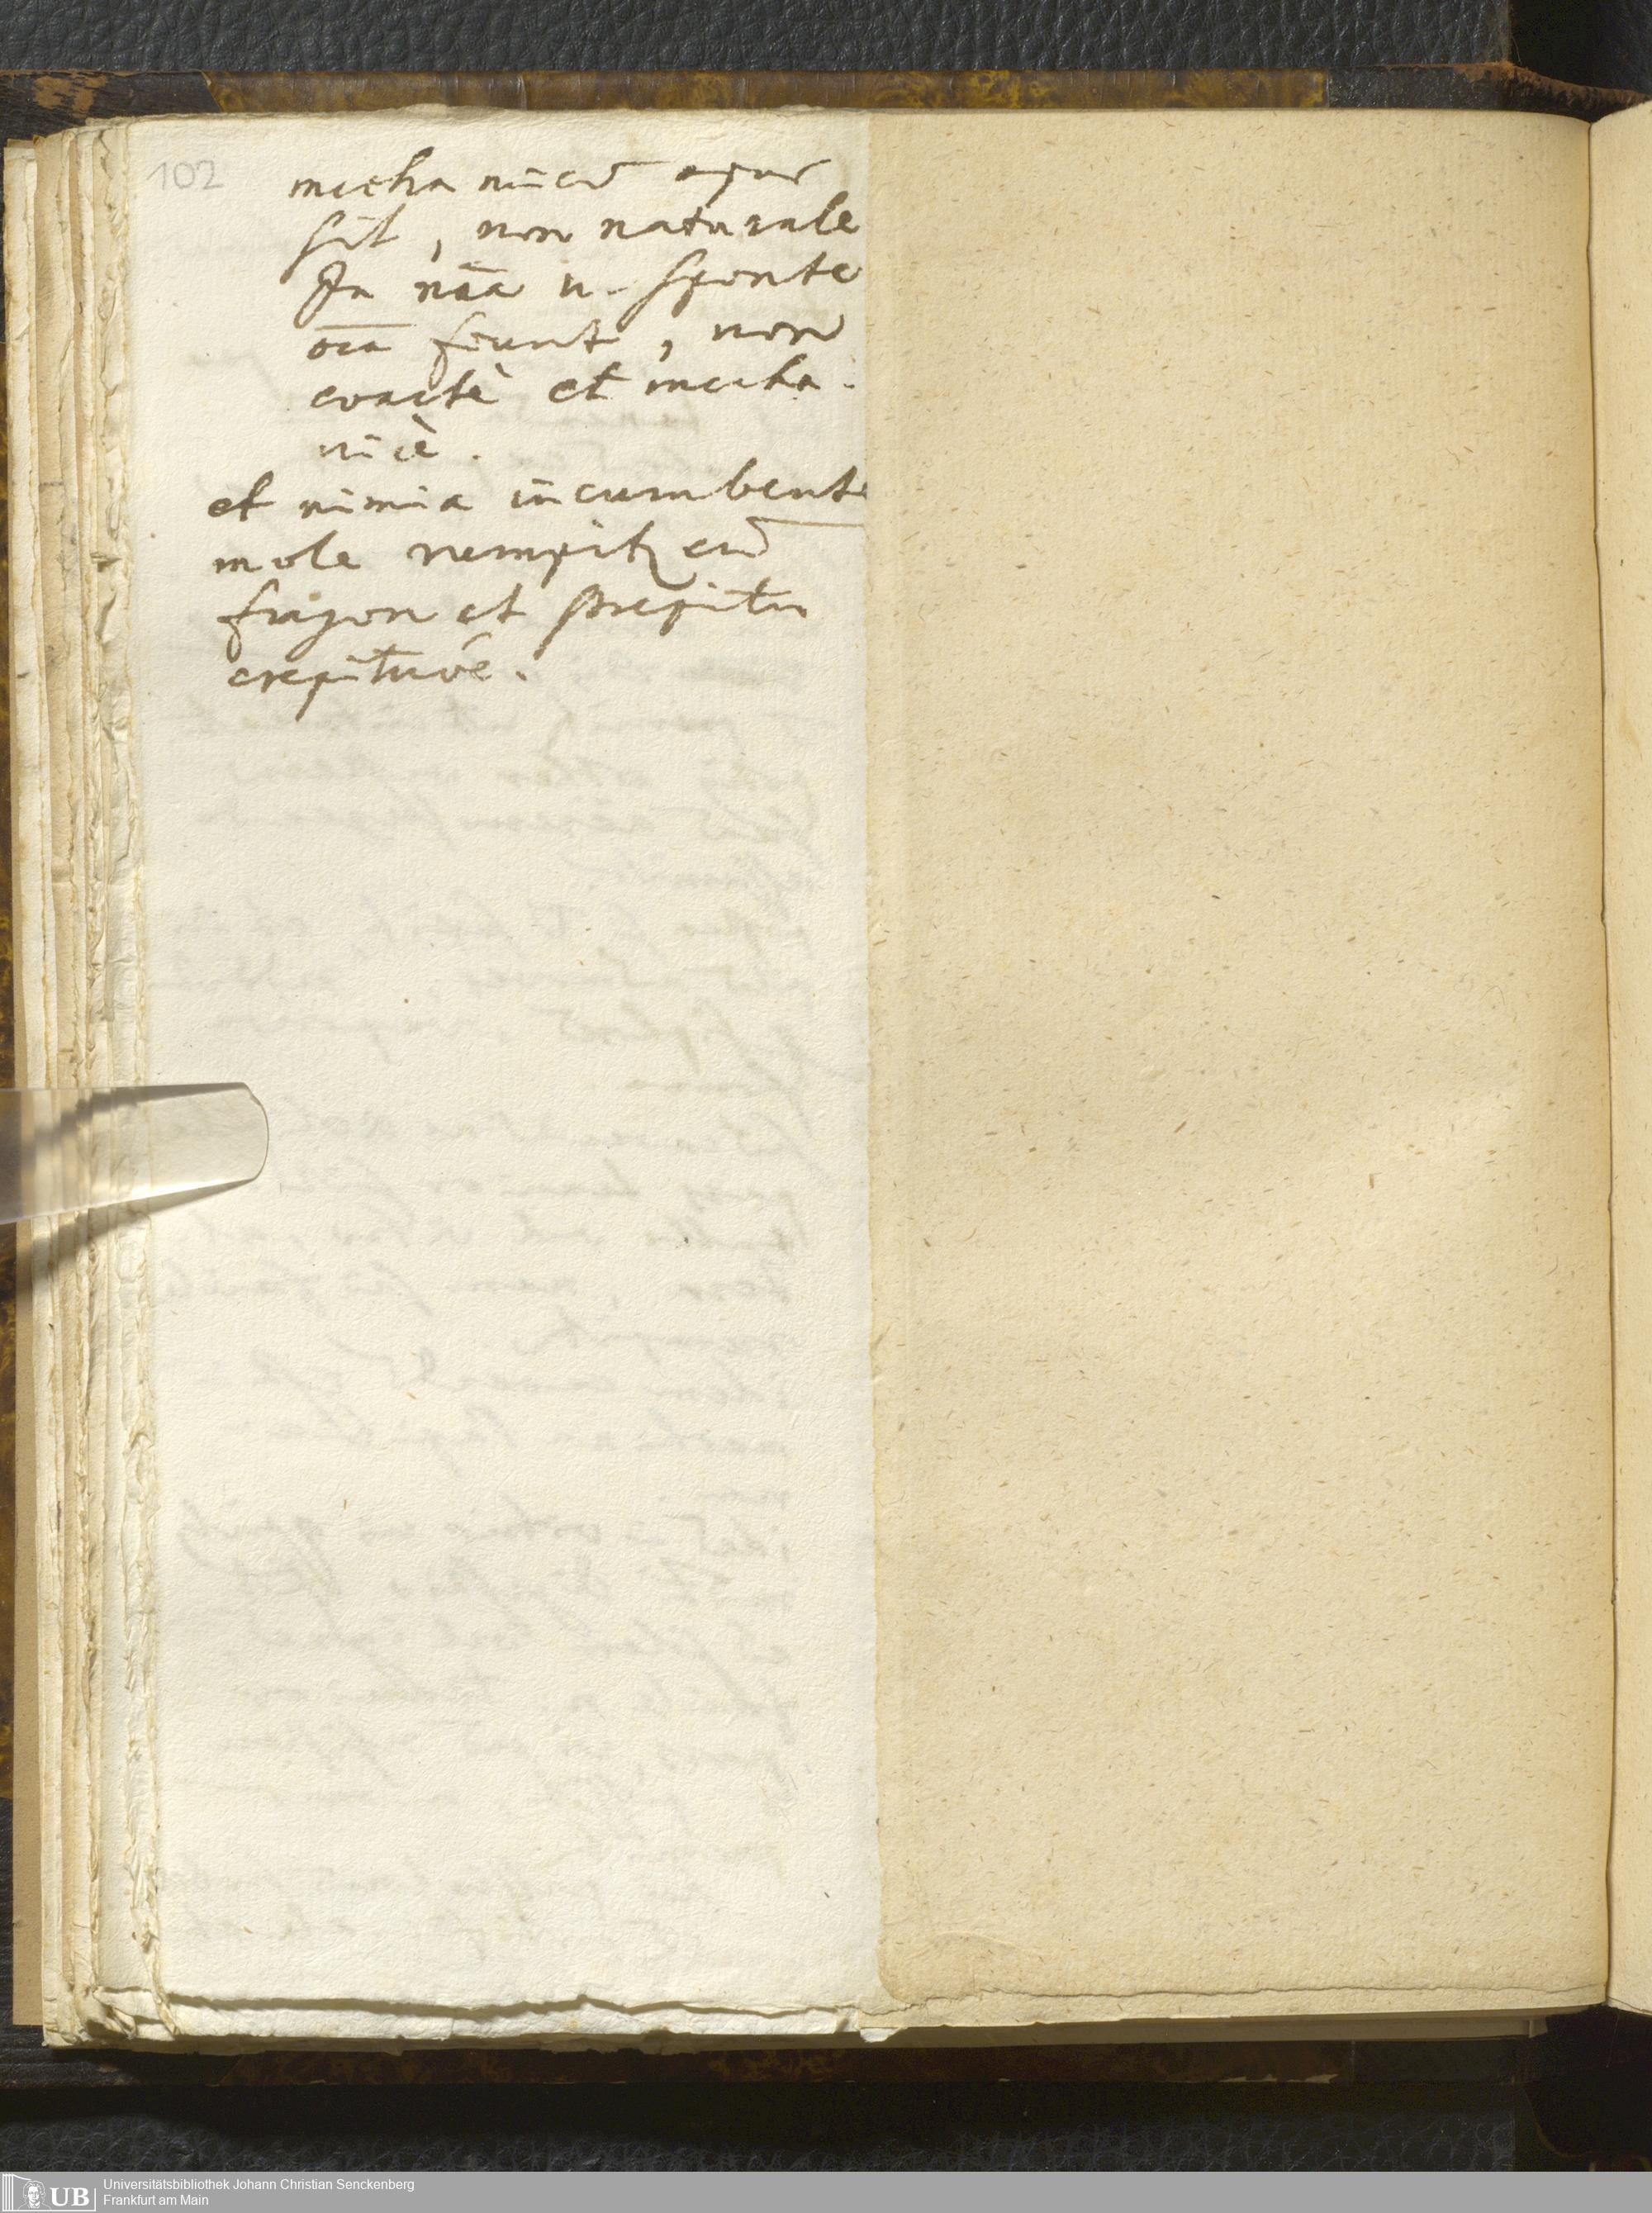 102
mechanicū opus
sit, non naturale
In nāa n. sponte
oīa fiunt, non
coactè et mecha-
nicè.
et nimia incumbente
mole rumpitʒ cū
fragore et strepitu
crepituvé.
UB Universitätsbibliothek Johann Christian Senckenberg
Frankfurt am Main